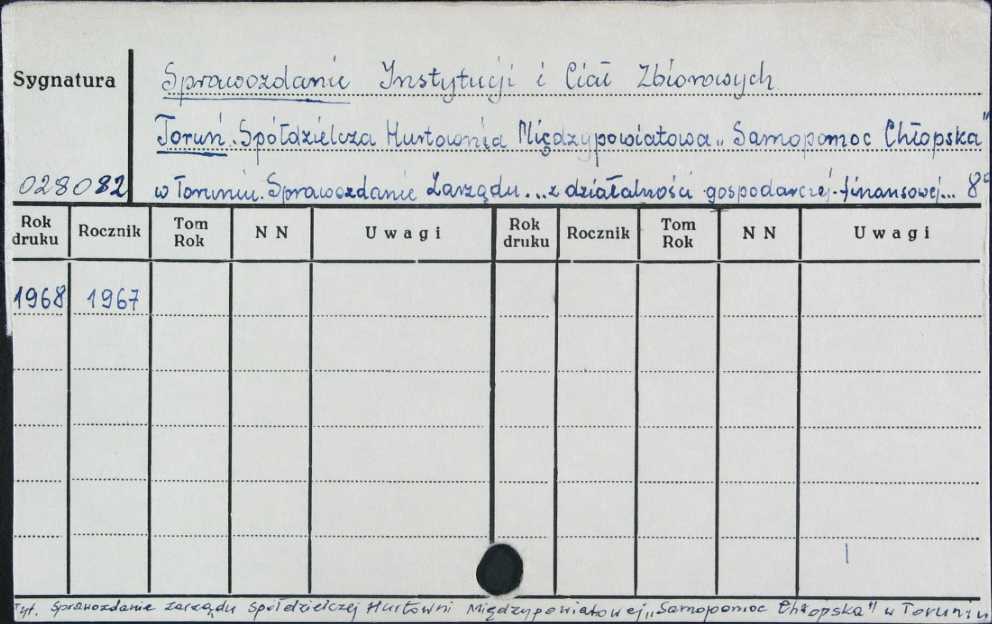 Sygnatura
Sprawozdanie Instytucji i Ciał Zbiorowych
Toruń. Spółdzielcza Hurtownia Międzypowiatowa „Samopomoc Chłopska"
028082 w Toruniu. Sprawozdanie Zarządu... z działalności gospodarczej-finansowej... 8°
Rok druku Rocznik Tom Rok N N Uwagi Rok druku Rocznik Tom Rok N N Uwagi
1968 1967
Tyt. Sprawozdanie zarządu Spółdzielczej Hurtowni Międzypowiatowej „Samopomoc Chłopska" w Toruniu